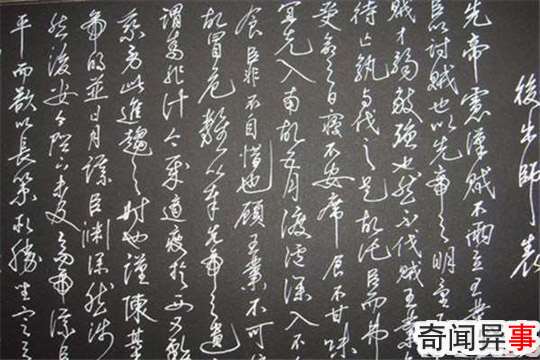 後出師表
先帝慮漢賊不兩立王業
臣以討賊也以先帝之明量
賊才弱敵強也然不伐賊王業
待亡孰與伐之是故託臣而弗
受命之日寢不安席食不甘味
宜先入南故五月渡瀘深入不
食臣非不自惜也顧王業不可
故冒危難以奉先帝之遺
謂為非計今賊適疲於西又務
乘勞此進趨之時也謹陳其
帝明並日月謀臣淵深然涉
然後安今陛下未及高帝謀臣
平而欲以長策取勝坐定
奇闻异事